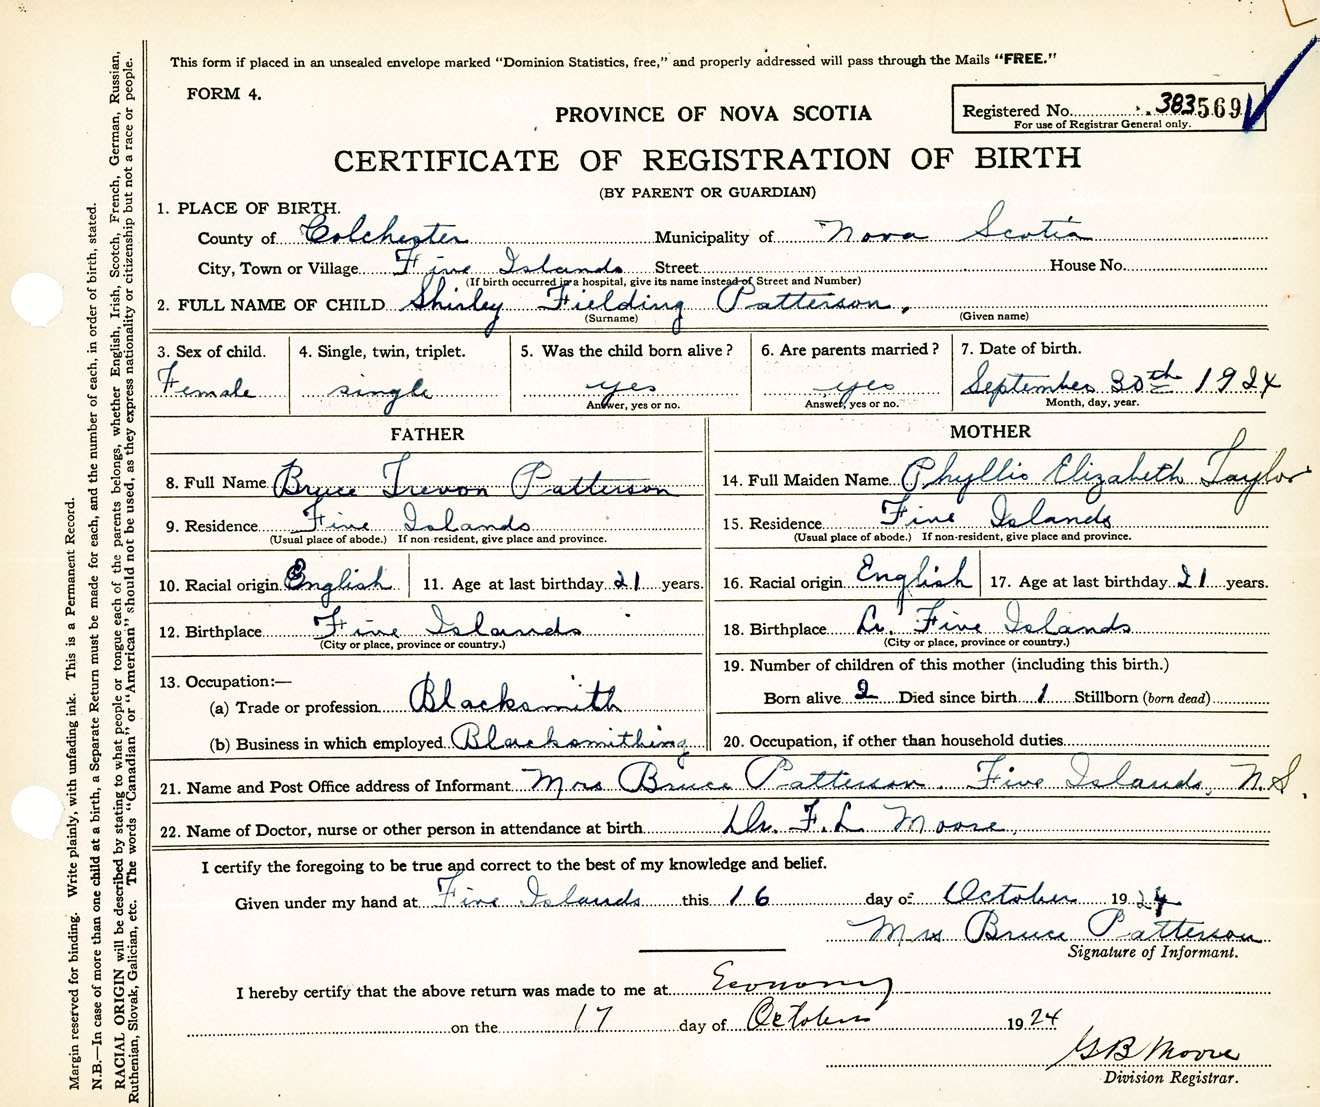 This form if placed in an unsealed envelope marked "Dominion Statistics, free," and properly addressed will pass through the Mails "FREE."
FORM 4.
PROVINCE OF NOVA SCOTIA
Registered No. 383569
For use of Registrar General only.
CERTIFICATE OF REGISTRATION OF BIRTH
(BY PARENT OR GUARDIAN)
1. PLACE OF BIRTH.
County of Colchester Municipality of Nova Scotia
City, Town or Village Five Islands Street House No.
(If birth occurred in a hospital, give its name instead of Street and Number)
2. FULL NAME OF CHILD Shirley Fielding Patterson,
(Surname) (Given name)
3. Sex of child. 4. Single, twin, triplet. 5. Was the child born alive? 6. Are parents married? 7. Date of birth.
Female single yes yes September 30th 1924
Answer, yes or no. Answer, yes or no. Month, day, year.
FATHER
8. Full Name Bruce Trevon Patterson
9. Residence Five Islands
(Usual place of abode.) If non-resident, give place and province.
10. Racial origin English 11. Age at last birthday 21 years.
12. Birthplace Five Islands
(City or place, province or country.)
13. Occupation:—
(a) Trade or profession Blacksmith
(b) Business in which employed Blacksmithing
MOTHER
14. Full Maiden Name Phyllis Elizabeth Taylor
15. Residence Five Islands
(Usual place of abode.) If non-resident, give place and province.
16. Racial origin English 17. Age at last birthday 21 years.
18. Birthplace Lr. Five Islands
(City or place, province or country.)
19. Number of children of this mother (including this birth.)
Born alive 2 Died since birth 1 Stillborn (born dead)
20. Occupation, if other than household duties
21. Name and Post Office address of Informant Mrs Bruce Patterson. Five Islands, N.S.
22. Name of Doctor, nurse or other person in attendance at birth Dr. F. L Moore,
I certify the foregoing to be true and correct to the best of my knowledge and belief.
Given under my hand at Five Islands this 16 day of October 1924
Mrs Bruce Patterson
Signature of Informant.
I hereby certify that the above return was made to me at Economy
on the 17 day of October 1924
G B Moore
Division Registrar.
Margin reserved for binding. Write plainly, with unfading ink. This is a Permanent Record.
N.B.—In case of more than one child at a birth, a Separate Return must be made for each, and the number of each, in order of birth, stated.
RACIAL ORIGIN will be described by stating to what people or tongue each of the parents belongs, whether English, Irish, Scotch, French, German, Russian,
Ruthenian, Slovak, Galician, etc. The words "Canadian" or "American" should not be used, as they express nationality or citizenship but not a race or people.